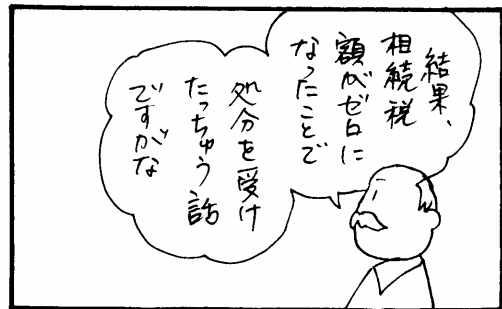 結果、
相続税
額がゼロに
なったことで
処分を受け
たっちゅう話
ですがな